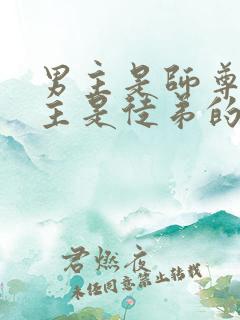 男主是師尊
主是徒弟的
君燃夜
未经同意禁止转载